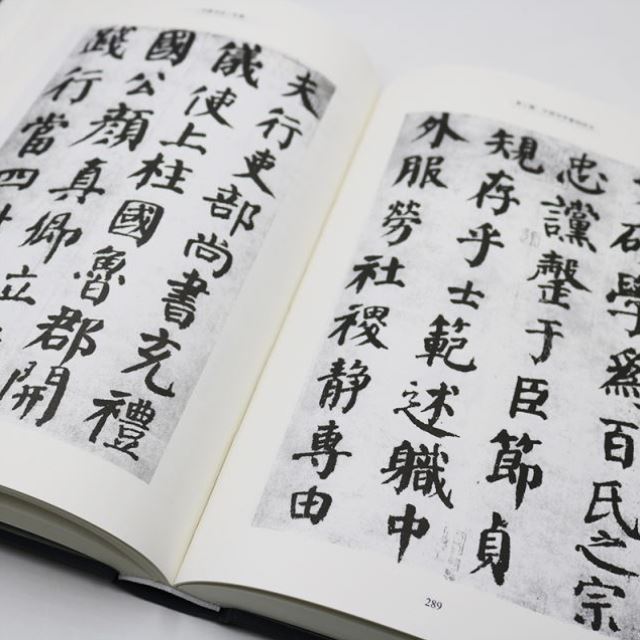 夫行吏部尚書充禮
儀使上柱國魯郡開
國公顏真卿立
踐行當四
碩學為百氏之宗
忠讜罄于臣節貞
規存乎士範述職中
外服勞社稷静專由
289